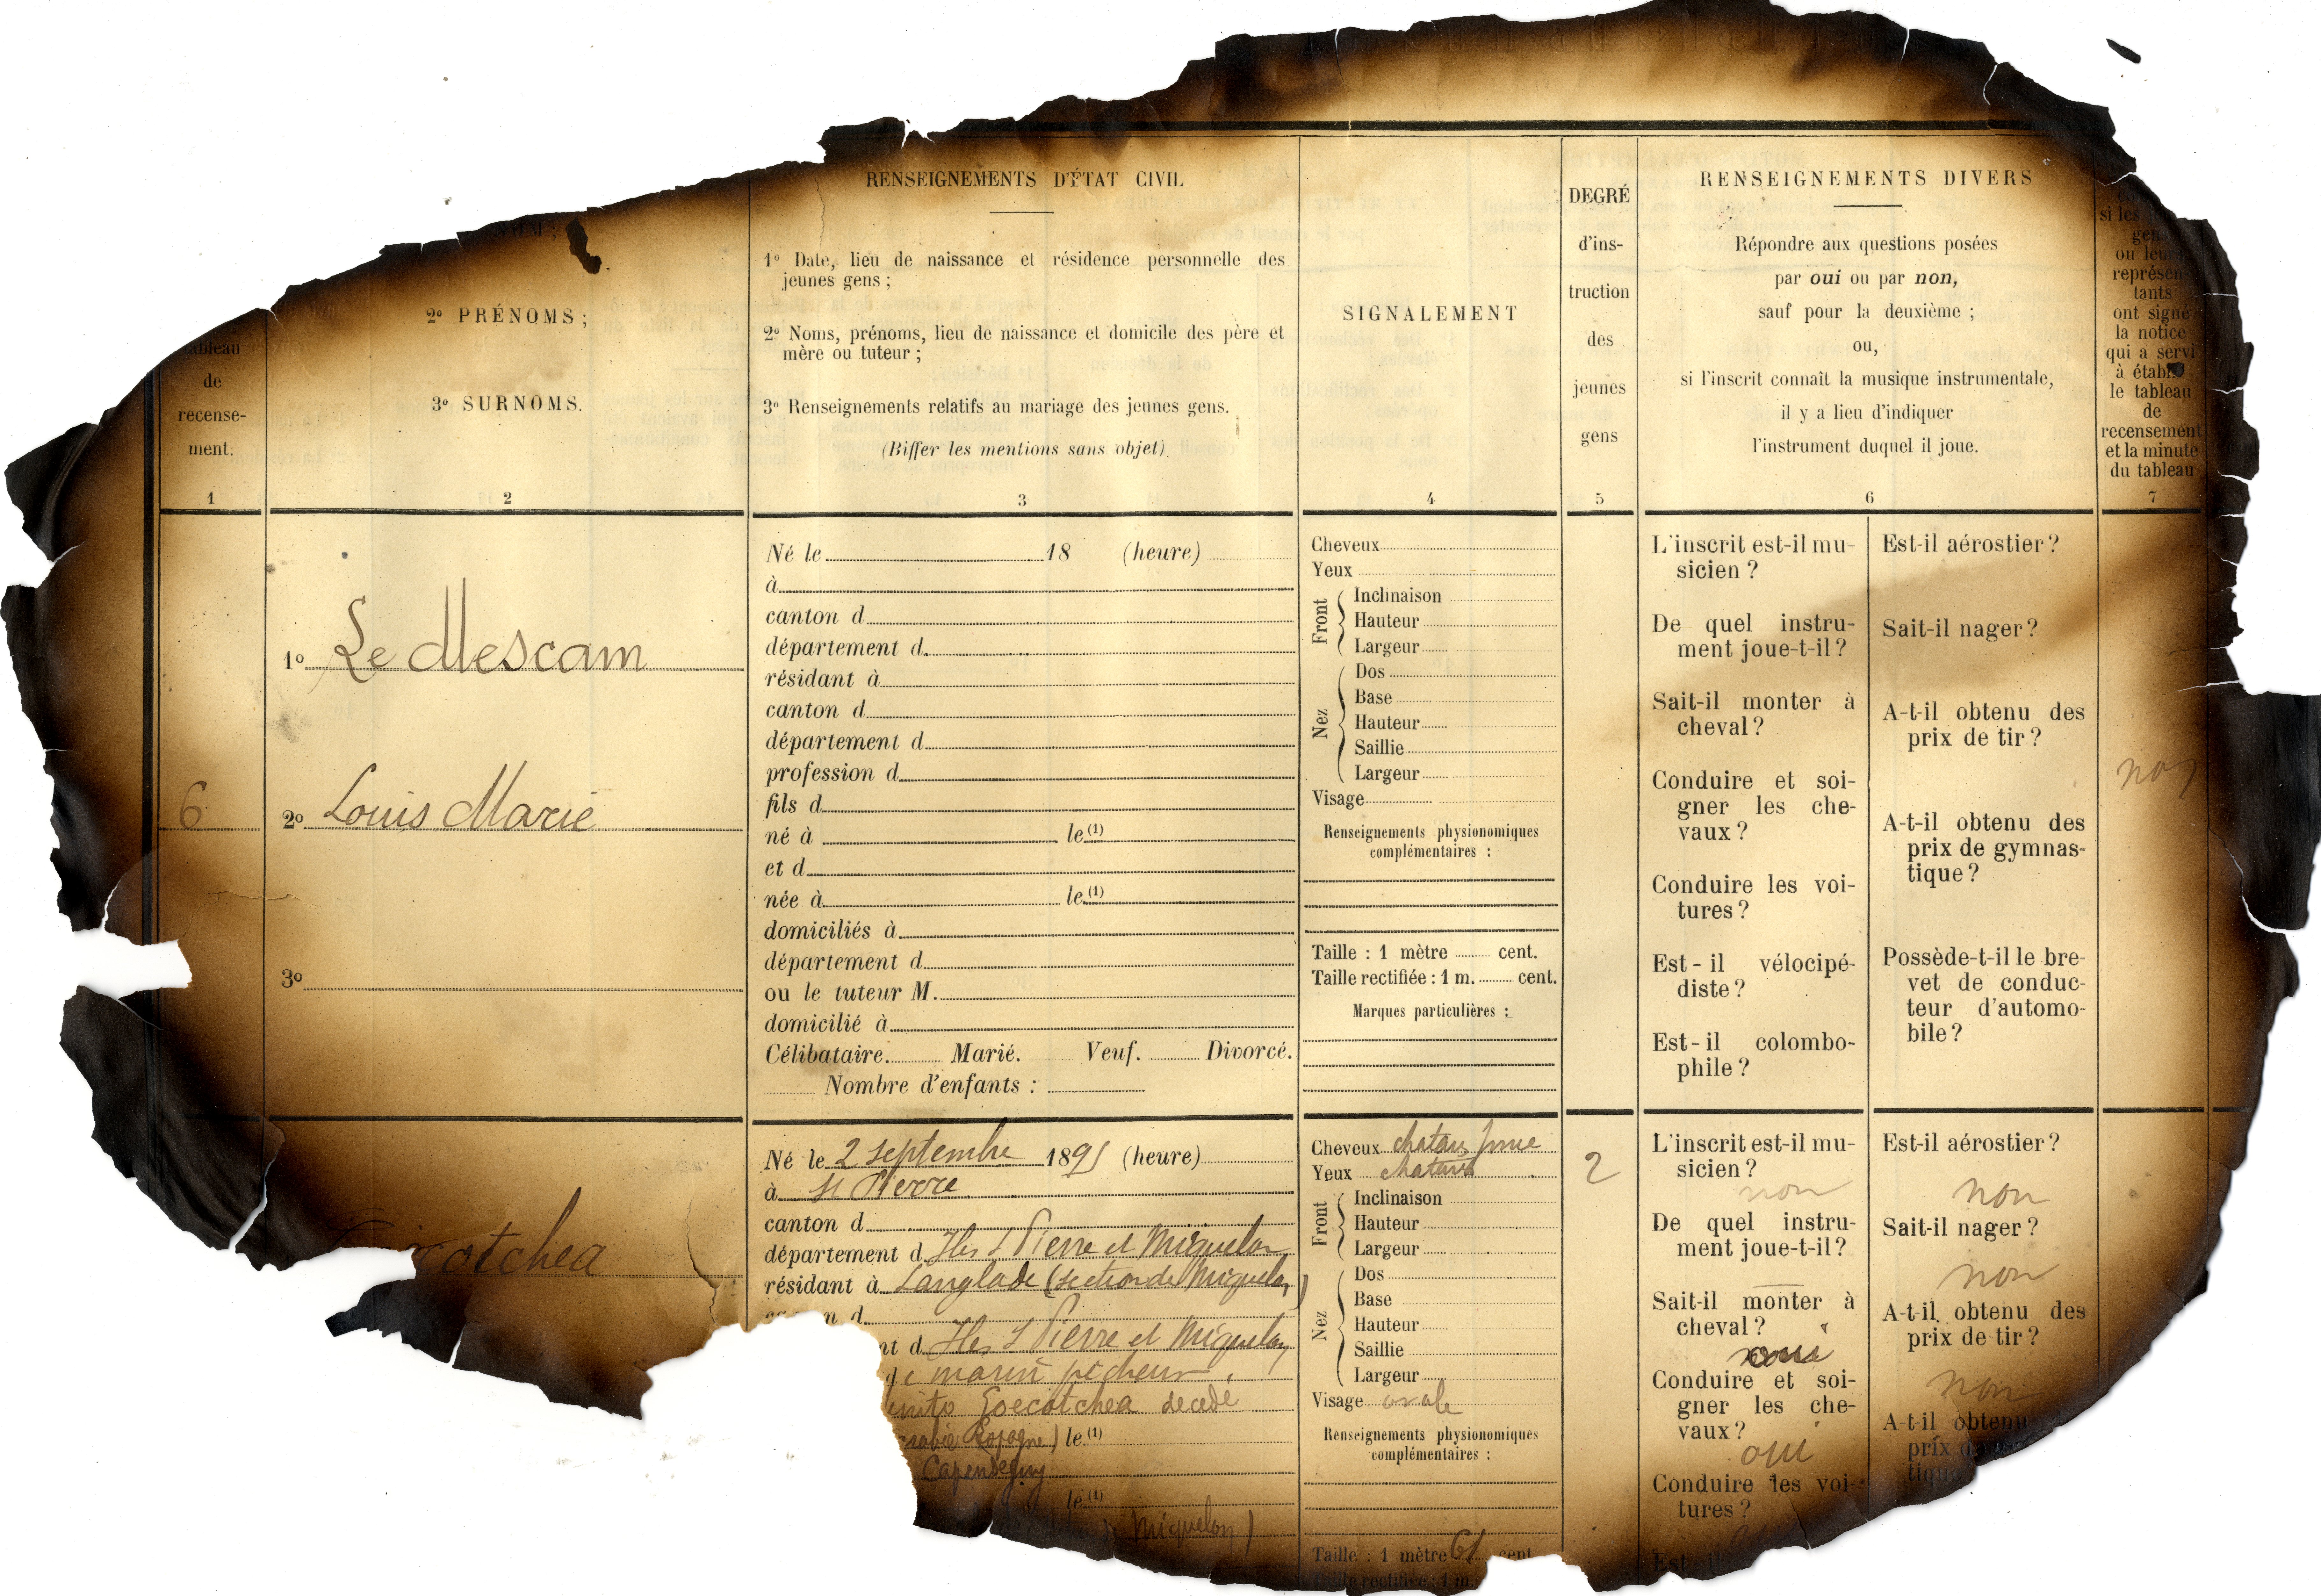 NOM;
2º PRÉNOMS;
3º SURNOMS.
tableau
de
recense-
ment.
1
2
RENSEIGNEMENTS D'ÉTAT CIVIL
1º Date, lieu de naissance et résidence personnelle des
jeunes gens;
2º Noms, prénoms, lieu de naissance et domicile des père et
mère ou tuteur;
3º Renseignements relatifs au mariage des jeunes gens.
(Biffer les mentions sans objet)
3
SIGNALEMENT
4
DEGRÉ
d'ins-
truction
des
jeunes
gens
5
RENSEIGNEMENTS DIVERS
Répondre aux questions posées
par oui ou par non,
sauf pour la deuxième;
ou,
si l'inscrit connaît la musique instrumentale,
il y a lieu d'indiquer
l'instrument duquel il joue.
6
si les
gen
ou leur
représen
tants
ont signé
la notice
qui a servi
à établ
le tableau
de
recensement
et la minute
du tableau
7
6
1º Le Mescam
2º Louis Marie
3º
Né le 18 (heure)
à
canton d
département d
résidant à
canton d
département d
profession d
fils d
né à le (1)
et d
née à le (1)
domiciliés à
département d
ou le tuteur M.
domicilié à
Célibataire. Marié. Veuf. Divorcé.
Nombre d'enfants :
Cheveux
Yeux
Front
Inclinaison
Hauteur
Largeur
Nez
Dos
Base
Hauteur
Saillie
Largeur
Visage
Renseignements physionomiques
complémentaires :
Taille : 1 mètre cent.
Taille rectifiée : 1 m. cent.
Marques particulières :
L'inscrit est-il mu-
sicien ?
De quel instru-
ment joue-t-il ?
Sait-il monter à
cheval ?
Conduire et soi-
gner les che-
vaux ?
Conduire les voi-
tures ?
Est-il vélocipé-
diste ?
Est-il colombo-
phile ?
Est-il aérostier ?
Sait-il nager ?
A-t-il obtenu des
prix de tir ?
A-t-il obtenu des
prix de gymnas-
tique ?
Possède-t-il le bre-
vet de conduc-
teur d'automo-
bile ?
non
cotchea
Né le 2 septembre 1891 (heure)
à St Pierre
canton d
département d Iles St Pierre et Miquelon
résidant à Langlade (section de Miquelon)
n d
nt d Iles St Pierre et Miquelon
de marin pêcheur
Goecotchea decedé
Espagne) le (1)
Capendeguy
le (1)
Miquelon)
Cheveux chatain foncé
Yeux chatains
Front
Inclinaison
Hauteur
Largeur
Nez
Dos
Base
Hauteur
Saillie
Largeur
Visage ovale
Renseignements physionomiques
complémentaires :
Taille : 1 mètre 61 cent
Taille rectifiée : 1 m.
2
L'inscrit est-il mu-
sicien ?
non
De quel instru-
ment joue-t-il ?
—
Sait-il monter à
cheval ?
oui
Conduire et soi-
gner les che-
vaux ?
oui
Conduire les voi-
tures ?
Est-il
Est-il aérostier ?
non
Sait-il nager ?
non
A-t-il obtenu des
prix de tir ?
non
A-t-il obtenu
prix d
tique